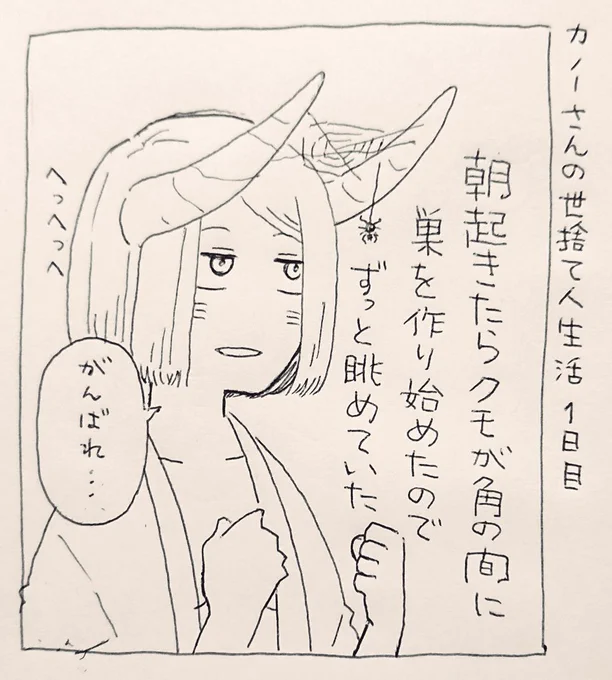 カノーさんの世捨て人生活 1日目
朝起きたらクモが角の間に
巣を作り始めたので
ずっと眺めていた
へっへっへ
がんばれ…